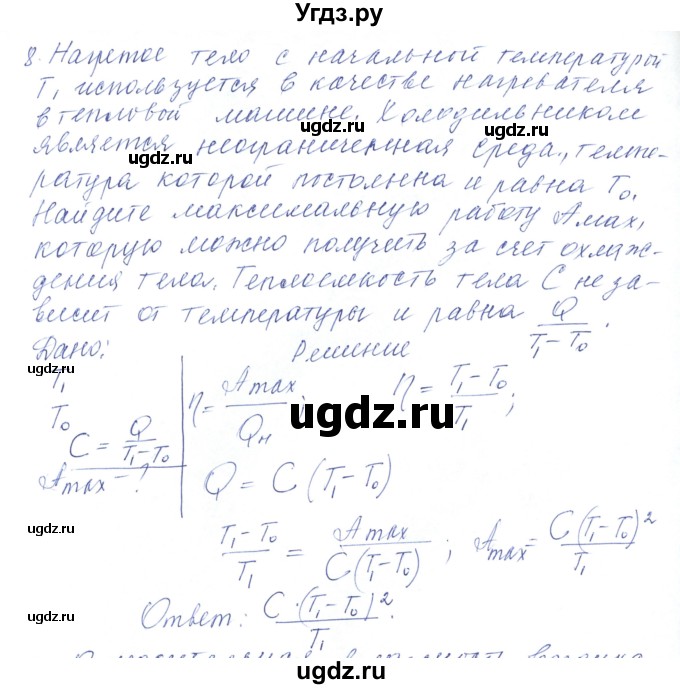 Угдз.ру
8. Нагретое тело с начальной температурой
T₁ используется в качестве нагревателя
в тепловой машине. Холодильником
ugdz.ru ugdz.ru
является неограниченная среда, темпе-
ратура которой постоянна и равна T₀.
Найдите максимальную работу Aмах,
которую можно получить за счет охлаж-
дения тела. Теплоемкость тела C не за-
висит от температуры и равна Q/(T₁ - T₀).
ugdz.ru
Дано: Решение
ugdz.ru
T₁
T₀
C = Q/(T₁ - T₀)
Amax - ?
η = Amax/Qн; η = (T₁ - T₀)/T₁;
ugdz.ru
Q = C (T₁ - T₀)
ugdz.ru
(T₁ - T₀)/T₁ = Amax/(C(T₁ - T₀)); Amax = C(T₁ - T₀)²/T₁
ugdz.ru
Ответ: C·(T₁ - T₀)²/T₁.
ugdz.ru